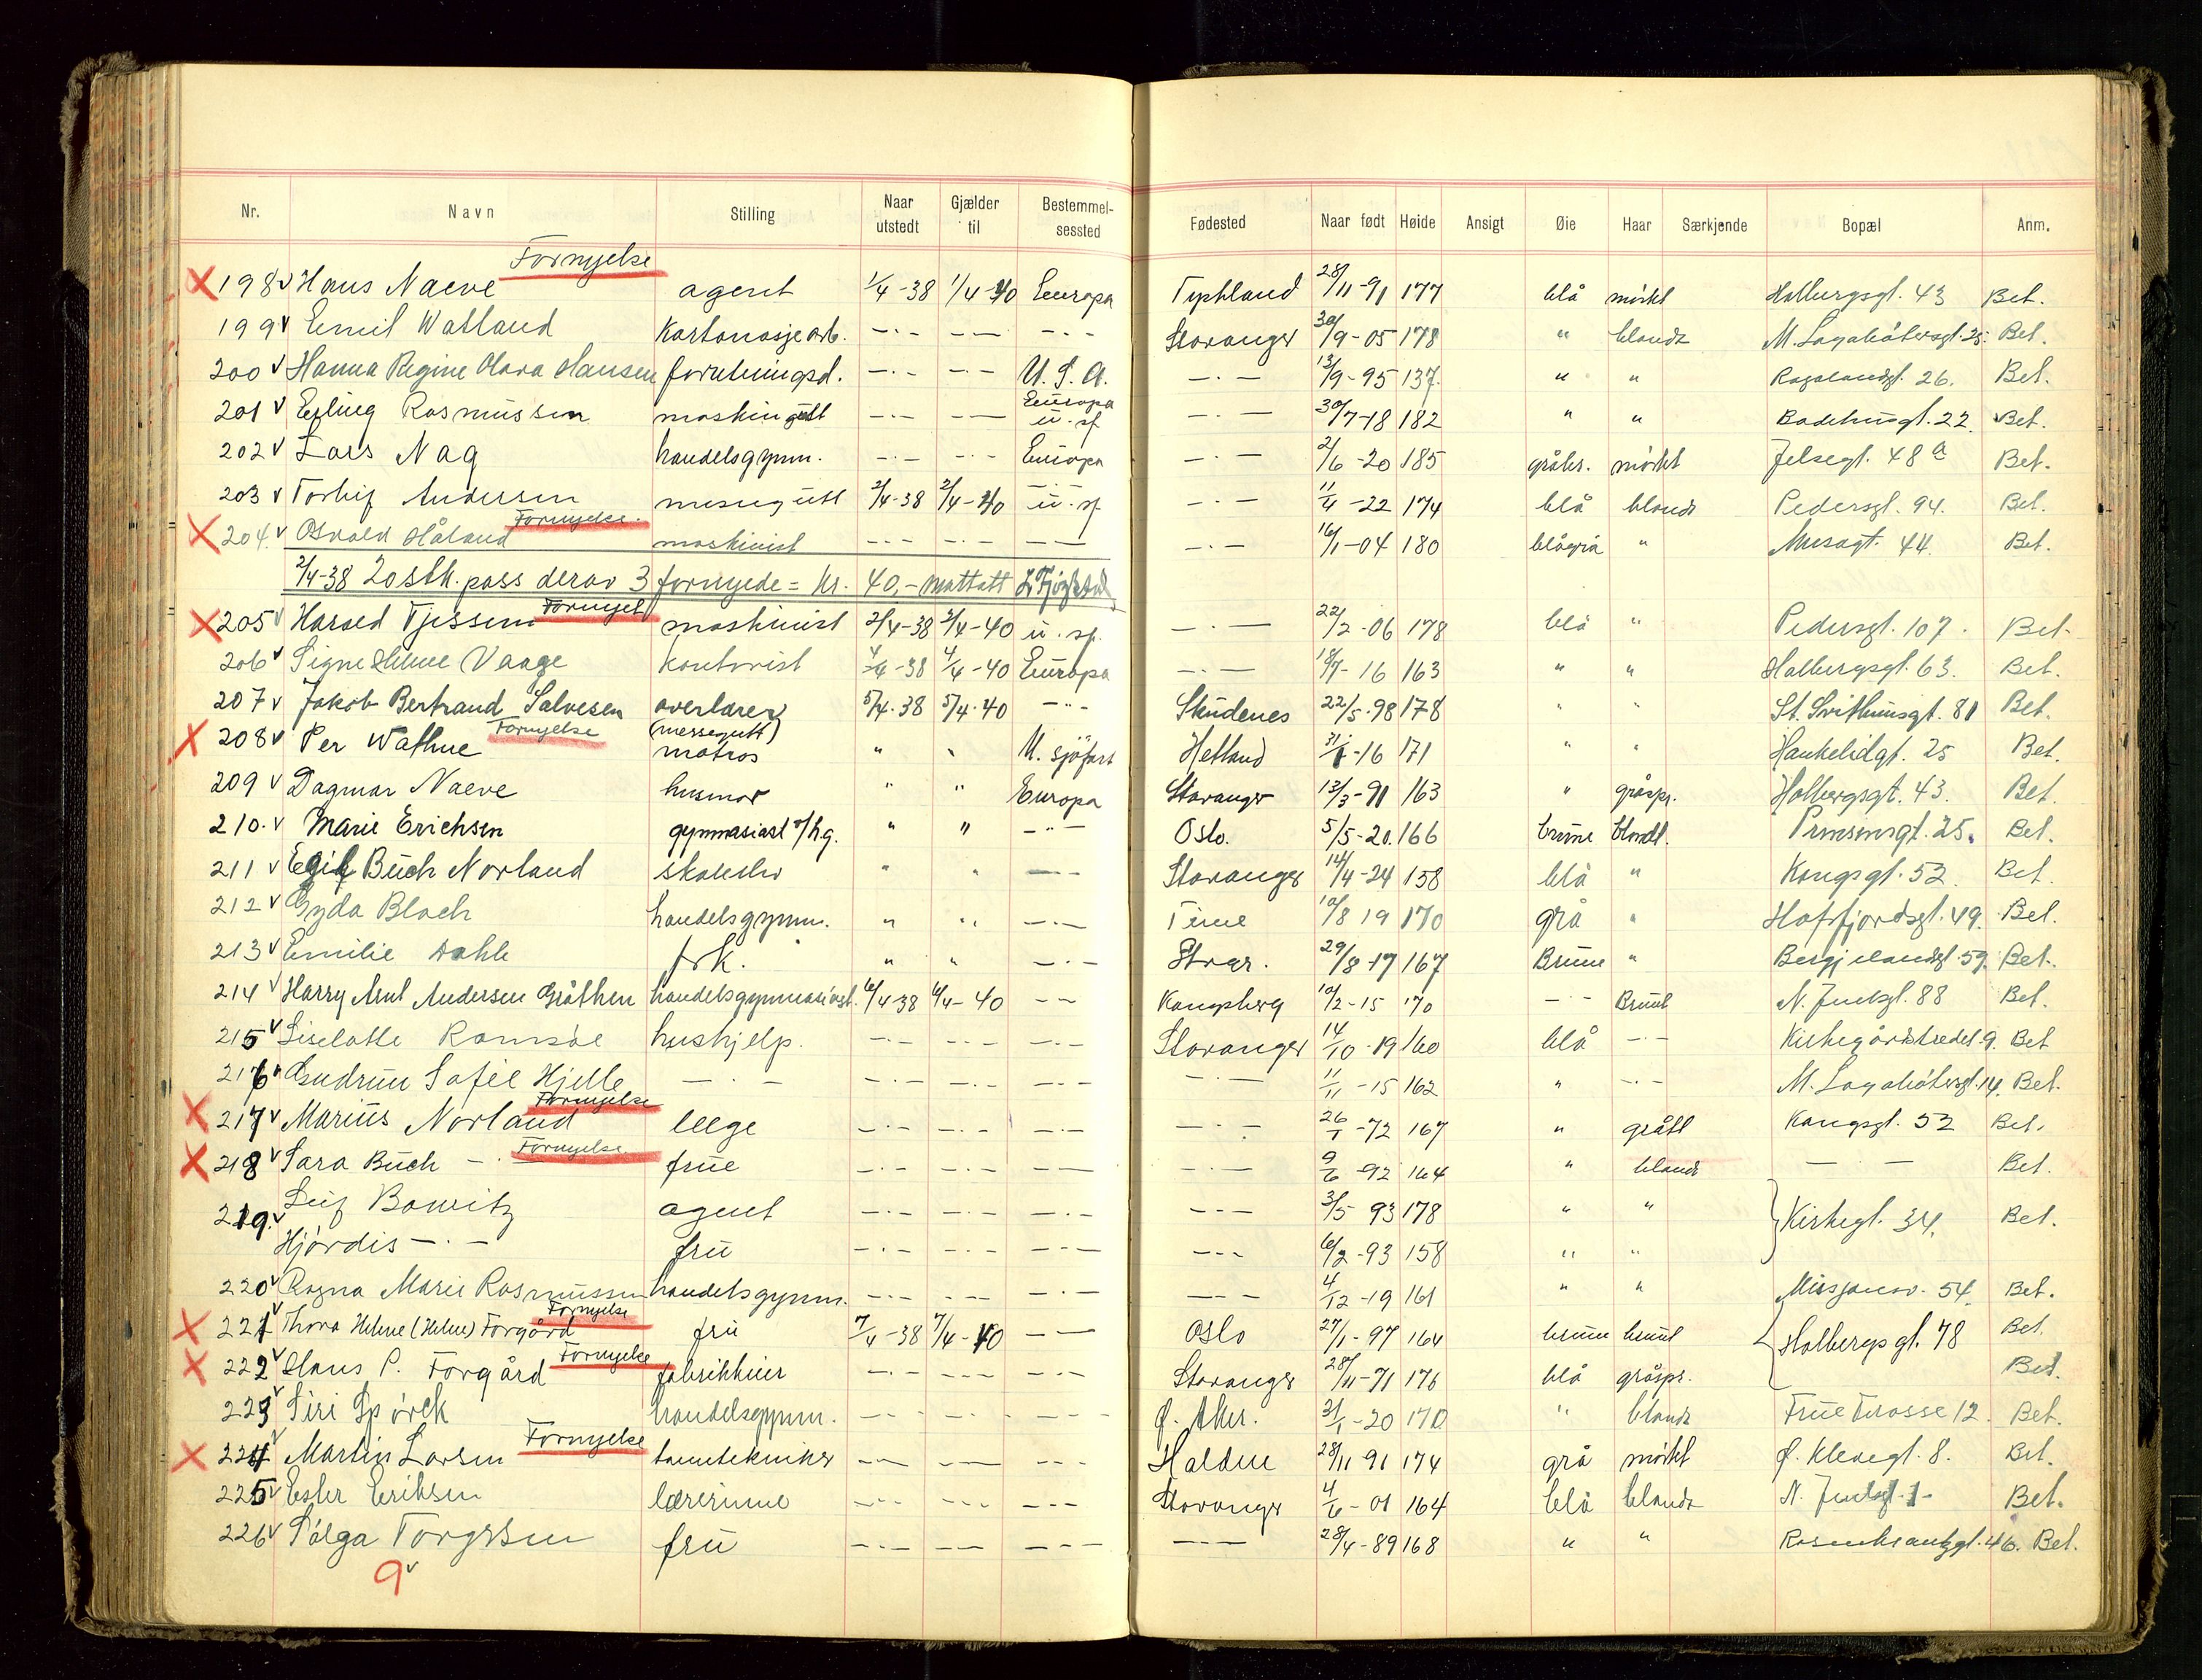 Nr. Navn Stilling Naar utstedt Gjælder til Bestemmelsessted Fødested Naar født Høide Ansigt Øie Haar Særkjende Bopæl Anm.
Fornyelse
198 v Hans Naeve agent 1/4-38 1/4-40 Europa Tyskland 28/11-91 177 blå mörkt Holbergsgt. 43 Bet.
199 v Emil Watland Kartonasjearb. -.- -- -.- Stavanger 30/9-05 178 " blondt M. Lagabötersgt. 25. Bet.
200 v Hanna Regine Olava Hansen forretningsd. -.- -.- U.S.A. -.- 13/9-95 137. " " Rogalandsgt. 26. Bet.
201 v Erling Rasmussen maskingutt -.- -- Europa u. sf. -.- 30/7-18 182 " " Badehusgt. 22. Bet.
202 v Lars Nag handelsgymn. -.- -.- Europa -.- 2/6-20 185 gråbr. mörkt Jelsegt. 48 a Bet.
203 v Torleif Andersen messegutt 2/4-38 2/4-40 -.- u. sf. -.- 11/4-22 174 blå blondt Pedersgt. 94. Bet.
Fornyelse.
204. v Osvald Håland maskinist -.- -.- -- -.- 16/1-04 180 blågrå " Musegt. 44. Bet.
2/4-38 20 stk. pass derav 3 fornyede = kr. 40,- mottatt
Fornyels
205 v Harald Tjessem maskinist 2/4-38 2/4-40 u. sf. -.- 22/2-06 178 blå " Pedersgt. 107. Bet.
206 v Signe Helene Vaage kontorist 4/4-38 4/4-40 Europa -.- 18/7-16 163 " " Holbergsgt. 63. Bet.
207 v Jakob Bertrand Salvesen overlærer 5/4-38 5/4-40 -"- Skudenes 22/5-98 178 " " St. Svithunsgt. 81 Bet.
Fornyelse (messegutt)
208 v Per Wathne matros " " U. sjöfart Hetland 31/1-16 171 " " Haukelidgt. 25 Bet.
209 v Dagmar Naeve husmor " " Europa Stavanger 13/3-91 163 " gråspr. Holbergsgt. 43. Bet.
210. v Marie Erichsen gymnasiast v/h.g. " " -"- Oslo. 5/5-20. 166 brune blondt. Prinsensgt. 25. Bet.
211 v Egil Buch Norland skoleelev " " -.- Stavanger 14/4-24 158 blå " Kongsgt. 52. Bet.
212 v Gyda Bloch handelsgymn. " " -.- Time 10/8 19 170 grå " Hafrsfjordsgt. 49. Bet.
213 v Emilie Dahle frk. " " -.- Stvgr. 29/8-17 167 Brune " Bergjelandsgt. 59. Bet.
214 v Harry Arnt Andersen Gråthen handelsgymnasiast. 6/4-38 6/4-40 -- Kongsberg 10/2-15 170 -.- Brunt N. Juelsgt. 88 Bet.
215 v Liselotte Ramsøe hushjelp. -.- -.- -.- Stavanger 14/10-19 160 blå -.- Kirkegårdstredet. 9. Bet
216 v Gudrun Sofie Hjelle -.- -.- -.- -.- -.- 11/11-15 162 " -.- M. Lagabötersgt. 14. Bet.
Fornyelse
217 v Marius Norland læge -.- -.- -.- -.- 26/1-72 167 " grått Kongsgt. 52 Bet.
Fornyelse
218 v Sara Buch -.- frue -.- -.- -- -.- 9/6-92 164 " blondt -- Bet.
219. v Leif Bowitz agent -.- -.- -.- -.- 3/5 93 178 " " Kirkegt. 34. Bet.
Hjördis -.- fru -.- -.- -.- -.- 6/2-93 158 " "
220 v Ragna Marie Rasmussen handelsgymn. -.- -.- -.- -.- 4/12-19 161 " " Missjonsv. 54. Bet.
Fornyelse
221 v Thora Helene (Helene) Forgård fru 7/4-38 7/4-40 -.- Oslo 27/1-97 164 brune brunt Holbergsgt. 78 Bet.
Fornyelse
222 v Hans P. Forgård fabrikkeier -.- -.- -.- Stavanger 28/11-71 176 blå gråspr. Bet.
223 v Siri Spörck handelsgymn. -.- -.- -.- Ø. Aker. 31/1-20 170 " blondt Frue Terrasse 12. Bet.
Fornyelse
224 v Martin Larsen tanntekniker -.- -- -.- Halden 28/11 91 174 grå mörkt Ø. Klevegt. 8. Bet.
225 v Ester Eriksen lærerinne -.- -.- -.- Stavanger 4/6-01 164 blå blondt N. Juelsgt. 1- Bet.
226 v Solga Torgersen fru -.- -- -.- -.- 28/4-89 168 " " Rosenkrantzgt. 46. Bet.
9 v